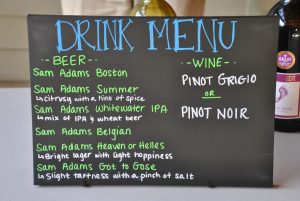 DRINK MENU
-BEER-
Sam Adams Boston
Sam Adams Summer
↳Citrusy with a hint of spice
Sam Adams Whitewater IPA
↳mix of IPA & wheat beer
Sam Adams Belgian
Sam Adams Heaven or Helles
↳Bright lager with light hoppiness
Sam Adams Got to Gose
↳Slight tartness with a pinch of salt
-WINE-
PINOT GRIGIO
OR
PINOT NOIR